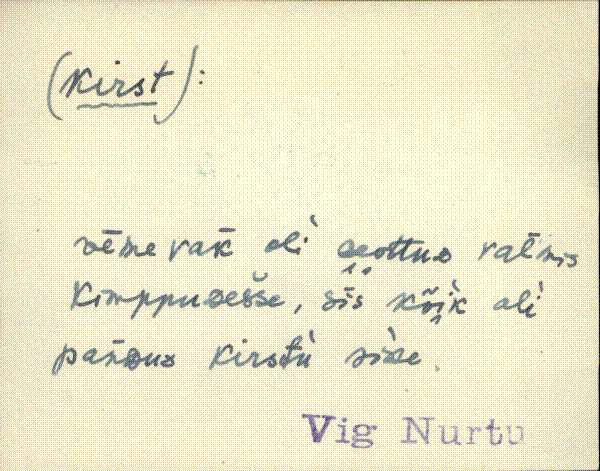 (Kirst):
vēme vak̄ oli̇̀ seottus val̄mis
Kimppusešše, sīs kõik oli̇̀
pan̄dus kirstù sisse.
Vig Nurtu